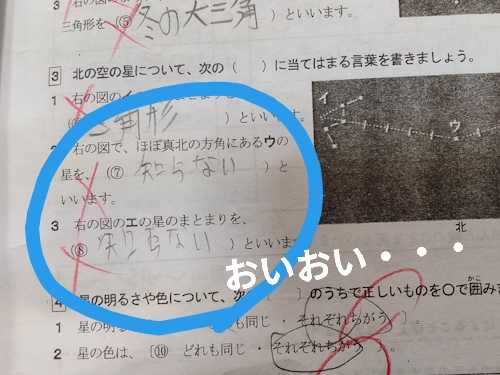 3 右の図
三角形を（⑤ 冬の大三角 ）といいます。
3 北の空の星について、次の（ ）に当てはまる言葉を書きましょう。
1 右の図のイ
三角形 ）といいます。
右の図で、ほぼ真北の方角にあるウの
星を、（⑦ 知らない ）と
いいます。
3 右の図のエの星のまとまりを、
（⑧ 知らない ）といいます
イ
ウ
北
おいおい・・・
4 星の明るさや色について、次 〔 〕のうちで正しいものを○で囲み
1 星の明る も同じ ・ それぞれちがう
2 星の色は、〔⑩ どれも同じ ・ それぞれちがう 〕。